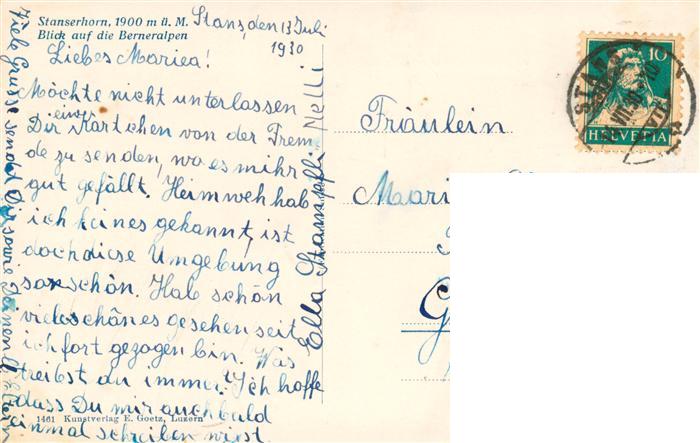 Stanserhorn, 1900 m ü. M.
Blick auf die Berneralpen
Stans, den 13 Juli
1930
Liebes Mariea!
Möchte nicht unterlassen
Dir einer Kärtchen von der Frem
de zu senden, wo es mihr
gut gefällt. Heimweh hab
ich keines gekannt, ist
doch diese Umgebung
so schön. Hab schön
viel schönes gesehen seit
ich fort gezogen bin. Was
treibst du immer? Ich hoffe
dass Du mir auch bald
einmal schreiben wirst.
1461 Kunstverlag E. Goetz, Luzern
Viele Grüsse sendet Dir sowie Deinen Eltern
Ella Stampfli Nelli
Fräulein
Mari
G
10
HELVETIA
STANS